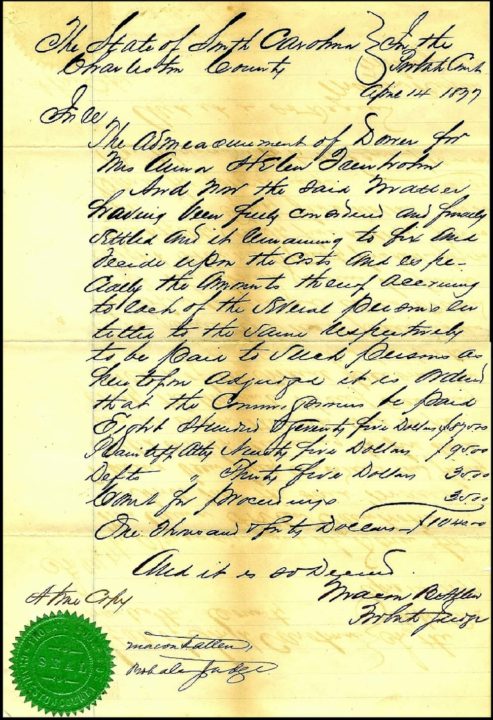 The State of South Carolina } In the
Charleston County } Probate Court
April 14 1877
In re
The Admeasurement of Dower for
Mrs Anna Helen
And now the said Matter
having been fully considered and finally
settled and it remaining to fix and
decide upon the Costs and espe-
cially the amounts thereof accruing
to each of the several persons en
titled to the same respectively
to be paid to such persons as
heretofore adjudged it is ordered
that the Commissioners be paid
Eight Hundred & seventy five Dollars $875.00
Plaintiffs Atty Ninety five Dollars $95.00
Defts " Thirty five Dollars 35.00
Court for proceedings 35.00
One thousand & forty Dollars $1040.00
And it is so Decreed.
Macon B Allen
Probate Judge
A true Copy
Macon B Allen
Probate Judge
SEAL